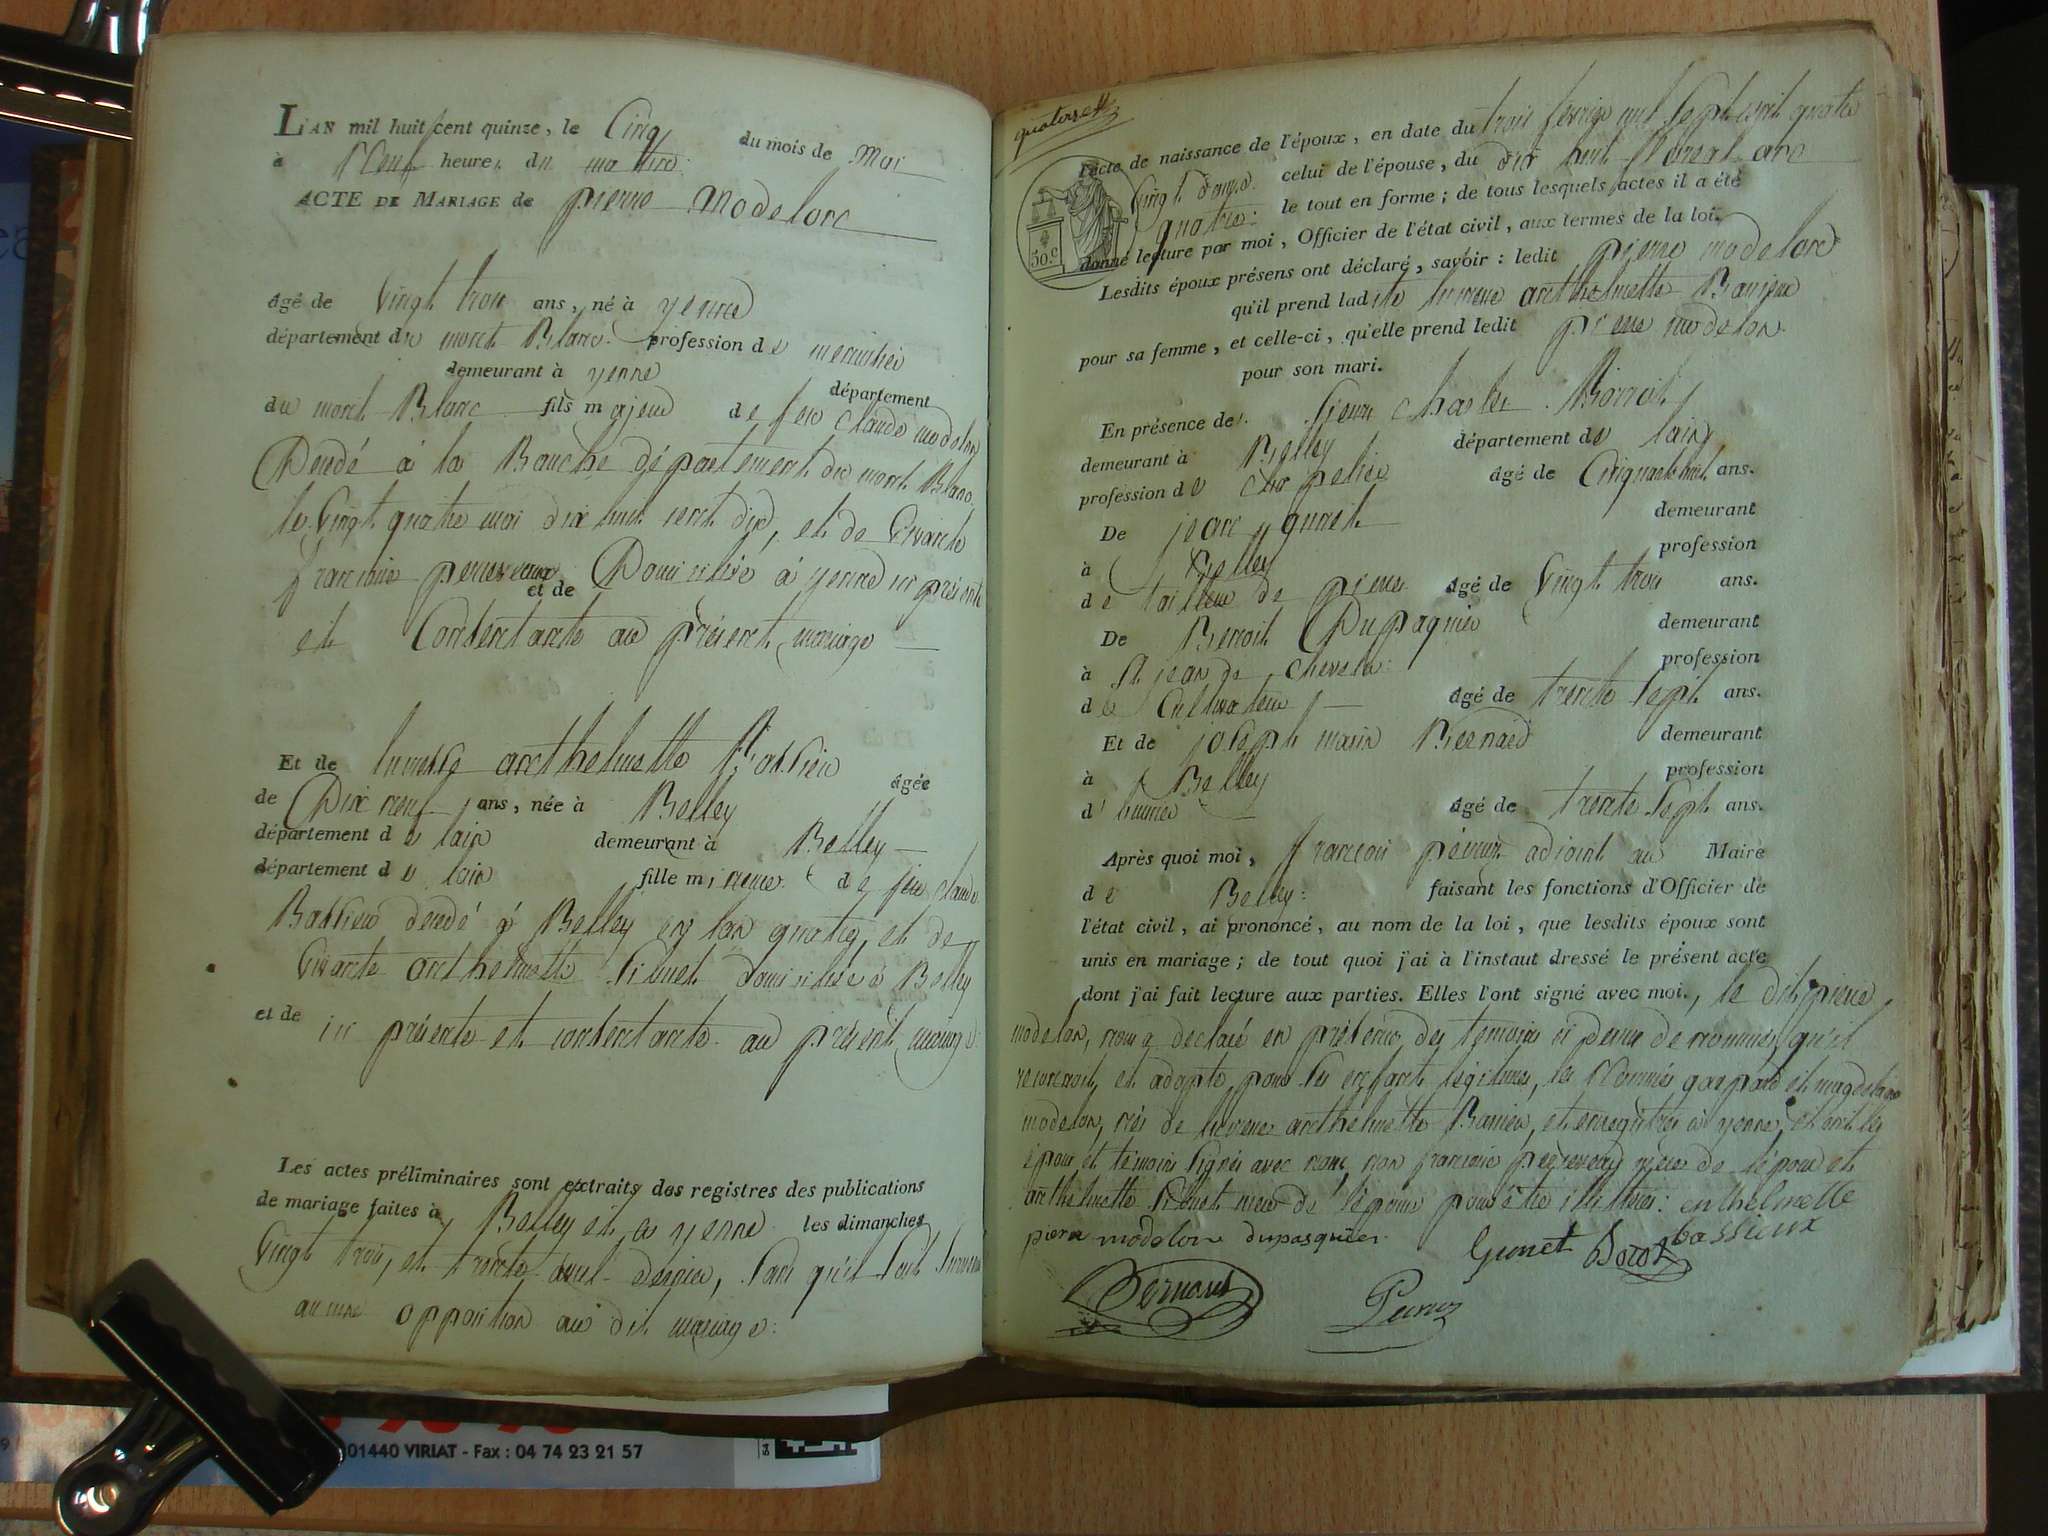 L'AN mil huit cent quinze, le Cinq du mois de Mai
à Neuf heures du matin:
ACTE DE MARIAGE de pierre Modelon
âgé de Vingt trois ans, né à yenne
département du mont Blanc. profession de menuisier
demeurant à yenne département
du mont Blanc fils majeur de feu Claude modelon
Décédé à la Bauche département du mont Blanc
le Vingt quatre mai dix huit cent dix, et de Vivante
francoise
et de Domiciliée à yenne ici présente
et Consentante au présent mariage
Et de anthelmette Bassieu âgée
de Dix neuf ans, née à Belley
département de lain demeurant à Belley
département de lain fille mineure de feu claude
Bassieu décédé à Belley en lan quatre, et de
Vivante anthelmette domiciliée à Belley
et de ici présente et consentante au présent mariage:
Les actes préliminaires sont extraits des registres des publications
de mariage faites à Belley et à yenne les dimanches
Vingt trois, et trente avril dernier, sans qu'il soit survenu
aucune opposition au dit mariage:
quatorze
l'acte de naissance de l'époux, en date du trois fevrier mil sept cent quatre
Vingt douze. celui de l'épouse, du dix huit floreal an
quatre: le tout en forme; de tous lesquels actes il a été
50.c
donné lecture par moi, Officier de l'état civil, aux termes de la loi.
Lesdits époux présens ont déclaré, savoir: ledit pierre modelon
qu'il prend ladite anthelmette Bassieux
pour sa femme, et celle-ci, qu'elle prend ledit pierre modelon
pour son mari.
En présence de Charles
demeurant à Belley département de lain
profession de chapelier âgé de Cinquante huit ans.
De jean gunet demeurant
à Belley profession
de tailleur de pierres âgé de Vingt trois ans.
De Benoit Dupaquier demeurant
à St jean de chevelu: profession
de Cultivateur âgé de trente sept ans.
Et de joseph marin Bernard demeurant
à Belley profession
d'huissier âgé de trente sept ans.
Après quoi moi, françois adjoint au Maire
de Belley: faisant les fonctions d'Officier de
l'état civil, ai prononcé, au nom de la loi, que lesdits époux sont
unis en mariage; de tout quoi j'ai à l'instant dressé le présent acte
dont j'ai fait lecture aux parties. Elles l'ont signé avec moi., le dit pierre
modelon, nous a declaré en présence des temoins ci dessus denommés, qu'il
reconnoit, et adopte pour ses enfants légitimes, les Nommés gaspard et magdelaine
modelon, nés de anthelmette Bassieu, et enregistrés à yenne, et ont les
époux et témoins signés avec nous, non francoise mère de l'époux et
anthelmette mère de l'épouse pour être illitérées: enthelmette
piere modelon dupasquier Gunet bassieux
Bernard